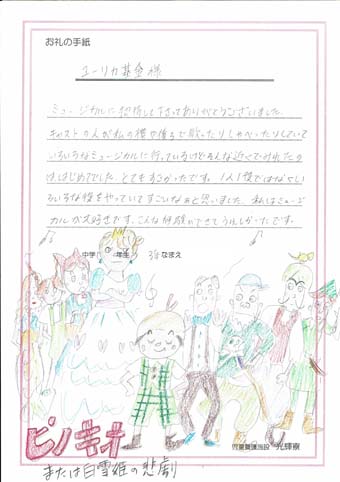 お礼の手紙
ユーリカ基金様
ミュージカルに招待して下さってありがとうございました。
キャストの人が私の横や後ろで歌ったりしゃべったりしていて
いろいろなミュージカルに行っているけどそんな近くでみれたの
ははじめてでした。とてもすごかったです。1人1役ではなくい
ろいろな役をやっていてすごいなぁと思いました。私はミュージ
カルが大好きです。こんな体験ができてうれしかったです。
中学 年生 なまえ
ピノキオ
または白雪姫の悲劇
児童養護施設 光輝寮